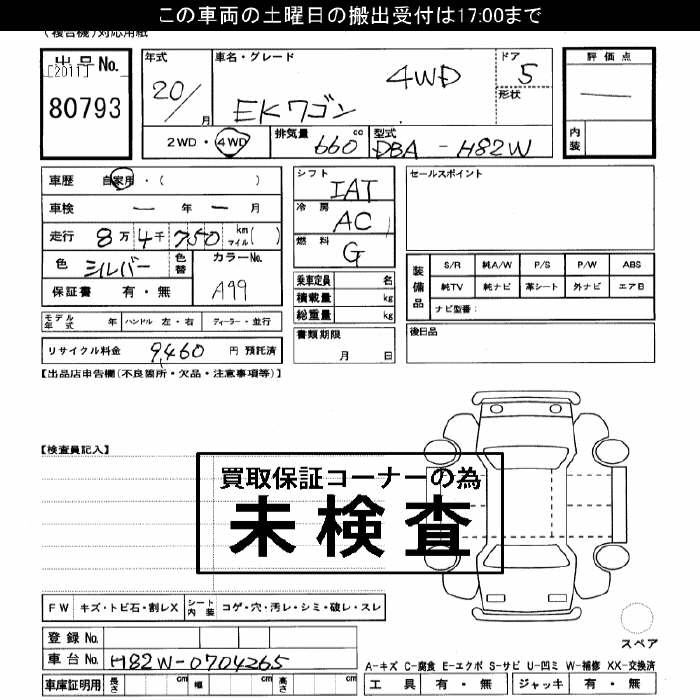 この車両の土曜日の搬出受付は17:00まで
(複合機)対応用紙
出品No.
[2011]
80793
年式
20/
月
車名・グレード
4WD
EKワゴン
ドア
5
形状
評価点
内装
2WD・4WD
排気量
660
cc
型式
DBA - H82W
車歴 自家用・( )
車検 ー 年 ー 月
走行 8万4千750 km マイル( )
色 シルバー 色替
カラーNo.
A99
保証書 有・無
モデル年式 年 ハンドル 左・右 ディーラー・並行
リサイクル料金 9,460 円 預託済
シフト
IAT
冷房
AC
燃料
G
乗車定員 名
積載量 kg
総重量 kg
書類期限
月 日
セールスポイント
装備品
S/R 純A/W P/S P/W ABS
純TV 純ナビ 革シート 外ナビ エアB
ナビ型番:
後日品
【出品店申告欄(不良箇所・欠品・注意事項等)】
【検査員記入】
買取保証コーナーの為
未検査
FW キズ・トビ石・割レX シート内装 コゲ・穴・汚レ・シミ・破レ・スレ
登録No.
車台No. H82W-0704265
車庫証明用 長さ cm 幅 cm 高さ cm
スペア
A-キズ C-腐食 E-エクボ S-サビ U-凹ミ W-補修 XX-交換済
工具 有・無 ジャッキ 有・無